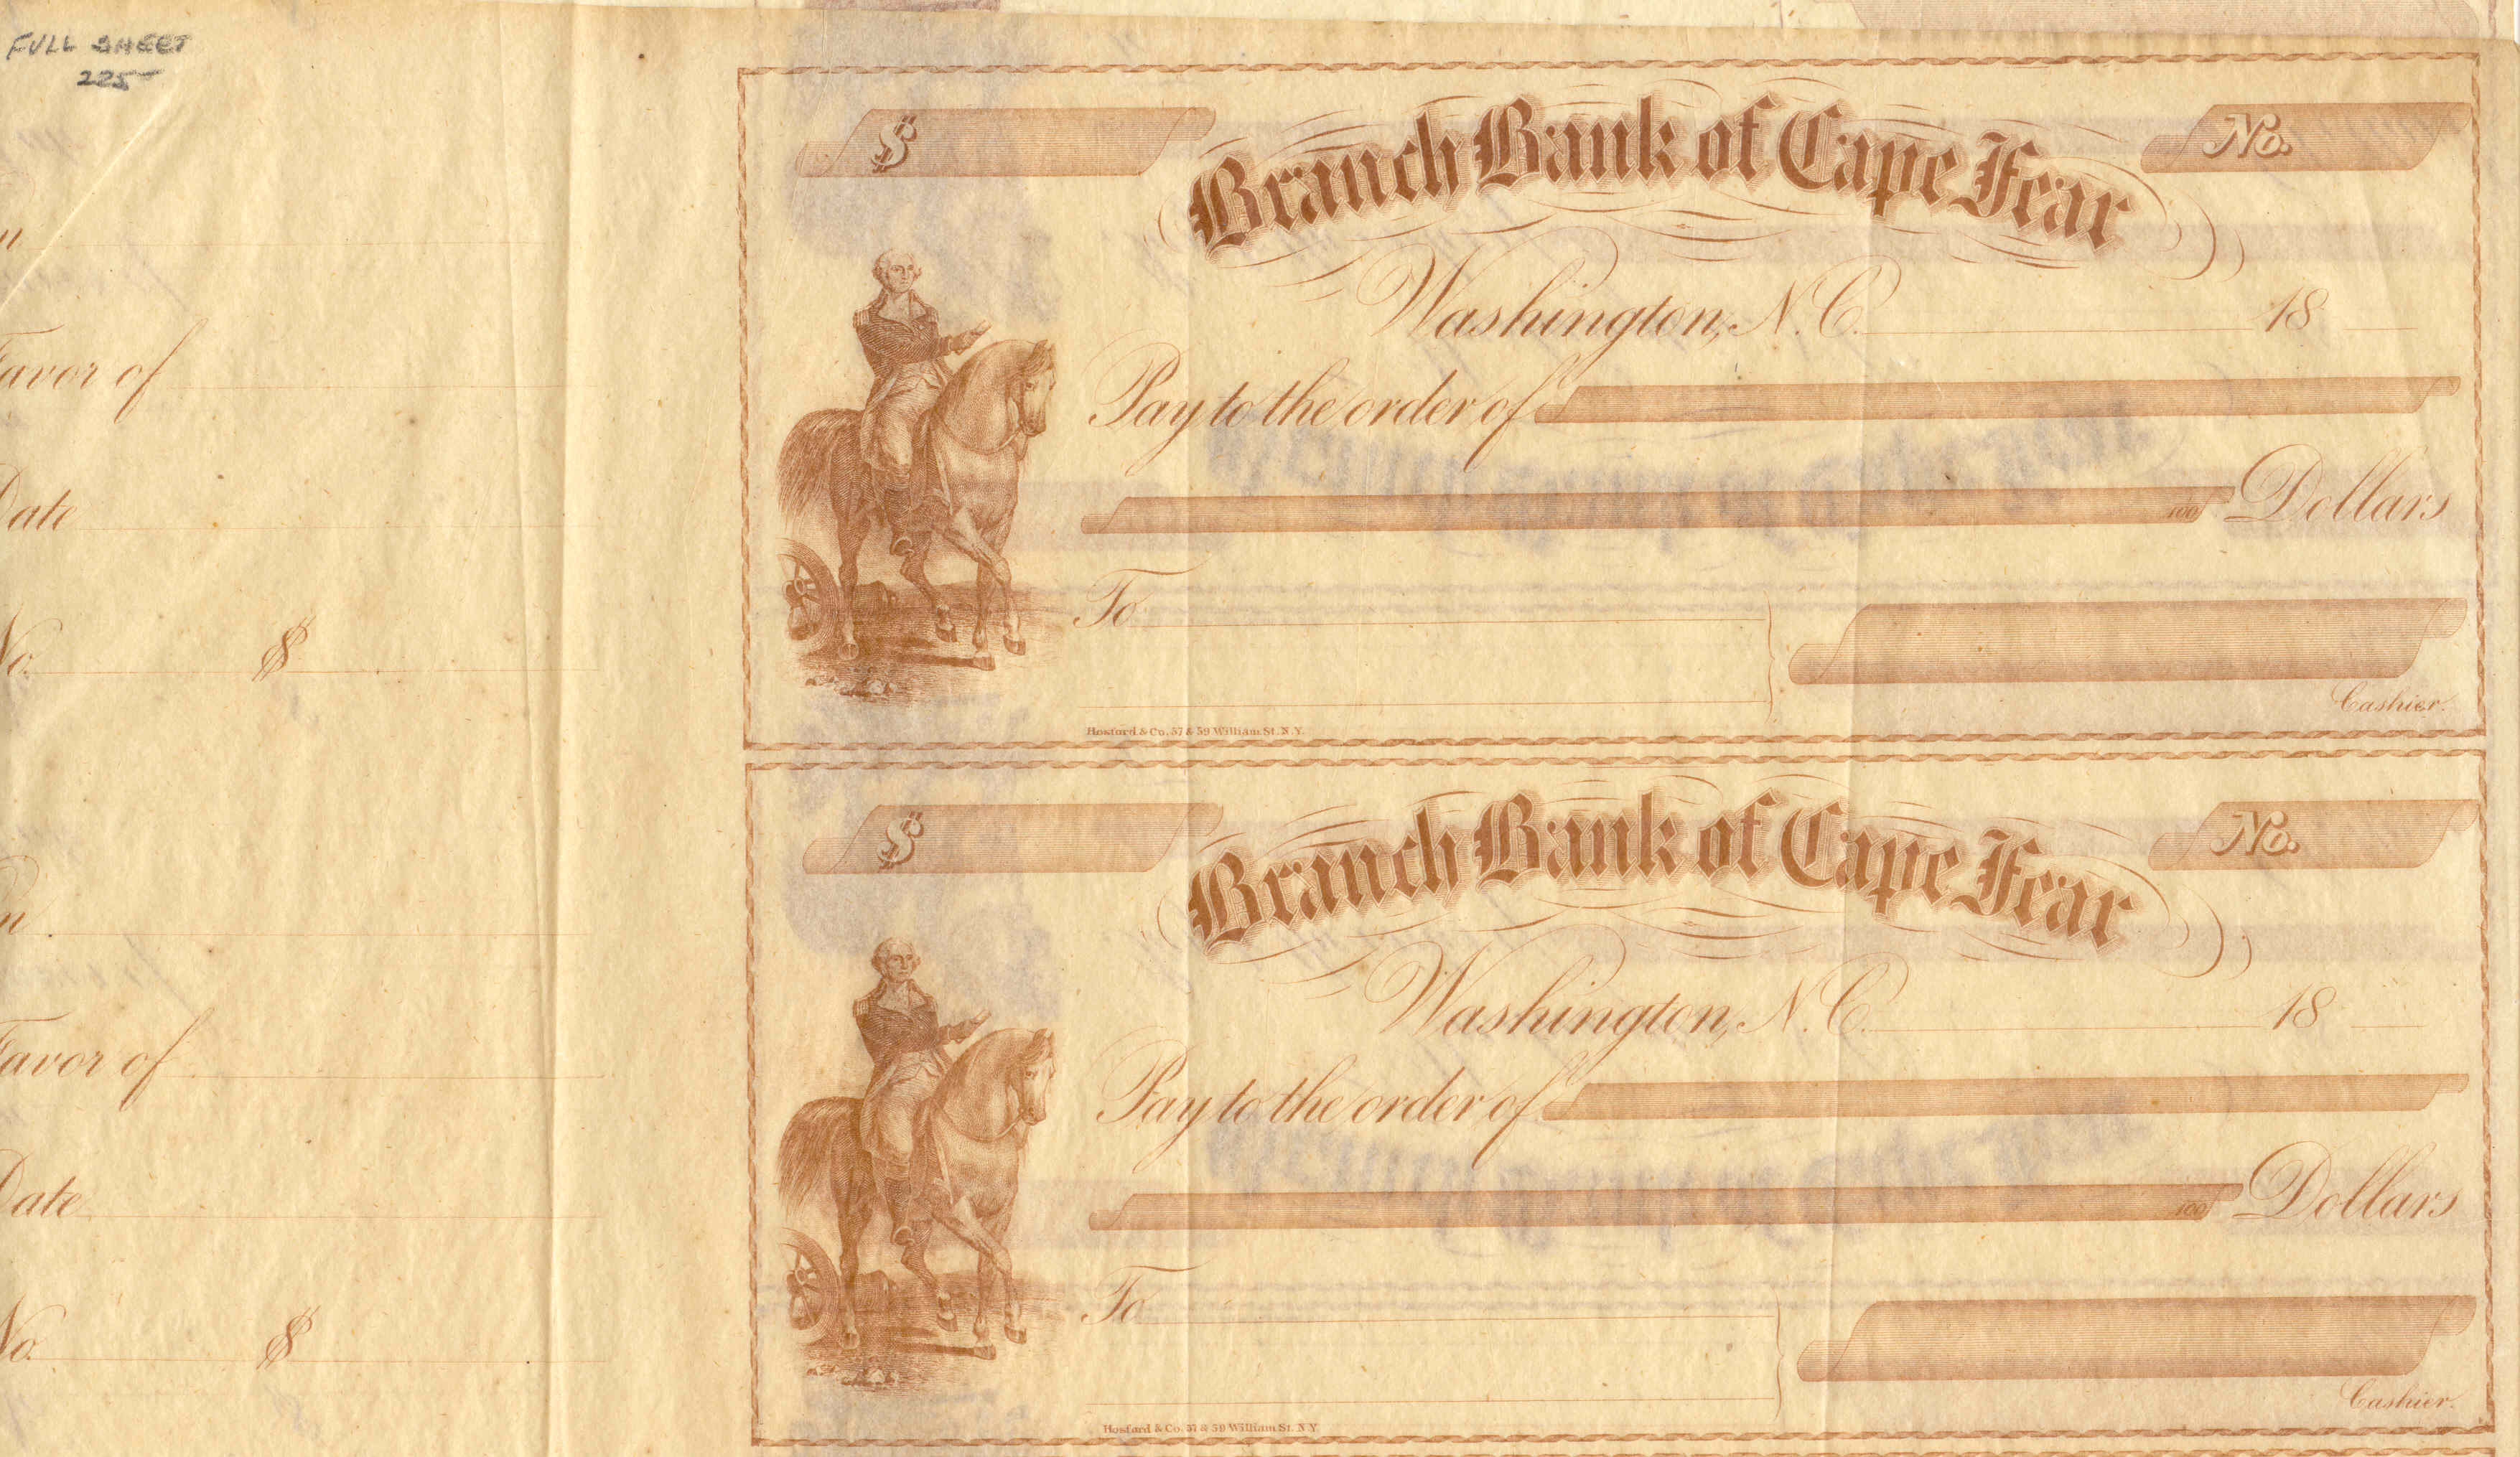 FULL SHEET
225
$
Branch Bank of Cape Fear
No.
Washington, N.C. 18
Pay to the order of
100 Dollars
To
Cashier.
Hosford & Co. 57 & 59 William St. N.Y.
avor of
ate
No. $
$
Branch Bank of Cape Fear
No.
Washington, N.C. 18
Pay to the order of
100 Dollars
To
Cashier.
Hosford & Co. 57 & 59 William St. N.Y.
avor of
ate
No. $